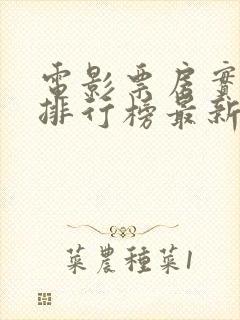 電影票房實
排行榜最新
菜農種菜1